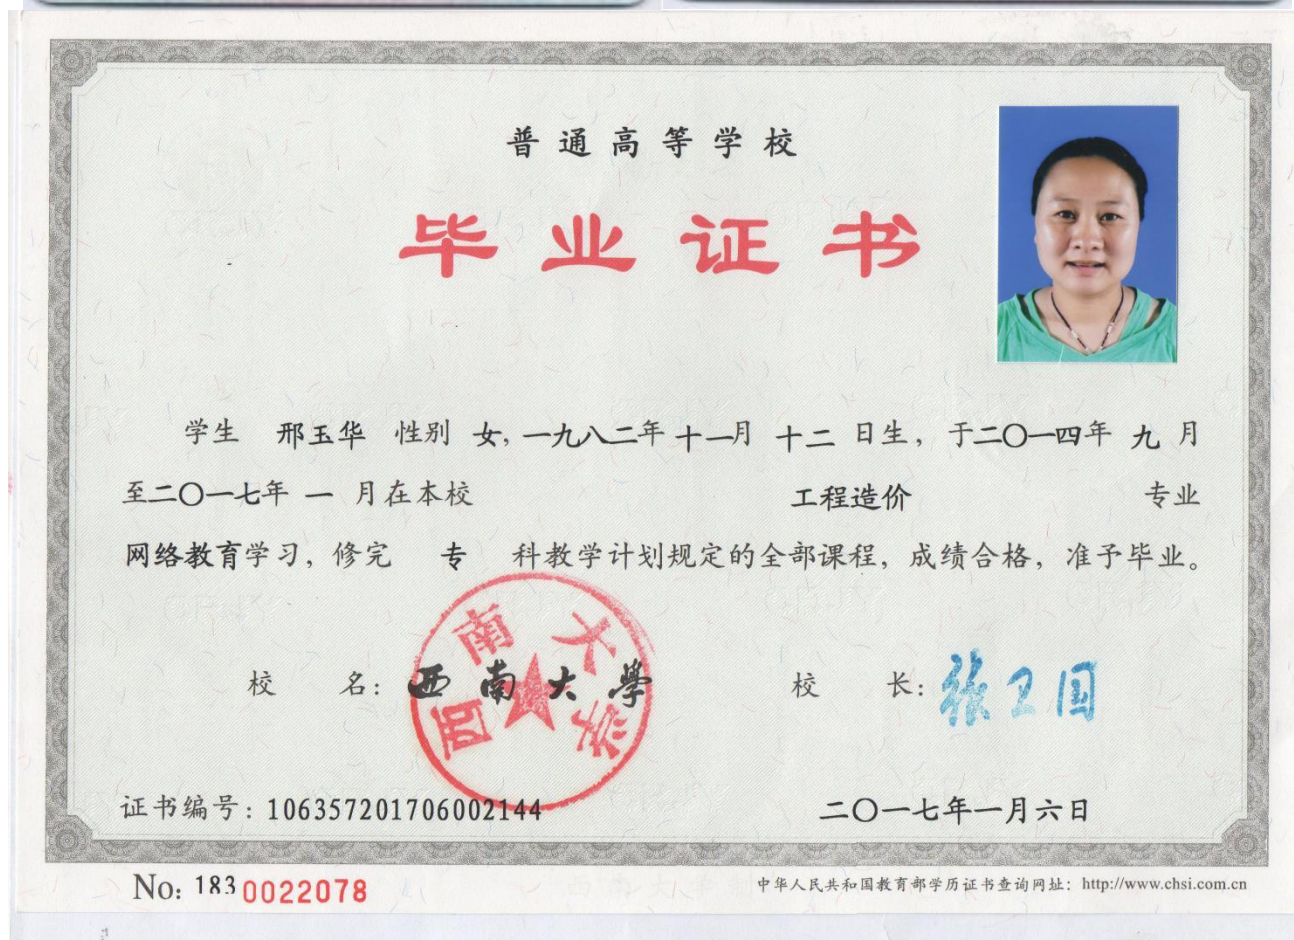 普通高等学校
毕业证书
学生 邢玉华 性别 女，一九八二年 十一月 十二 日生，于二〇一四年 九 月
至二〇一七年 一 月在本校 工程造价 专业
网络教育学习，修完 专 科教学计划规定的全部课程，成绩合格，准予毕业。
西南大学
校 名：西南大學 校 长：张卫国
证书编号：106357201706002144 二〇一七年一月六日
No: 183 0022078 中华人民共和国教育部学历证书查询网址：http://www.chsi.com.cn